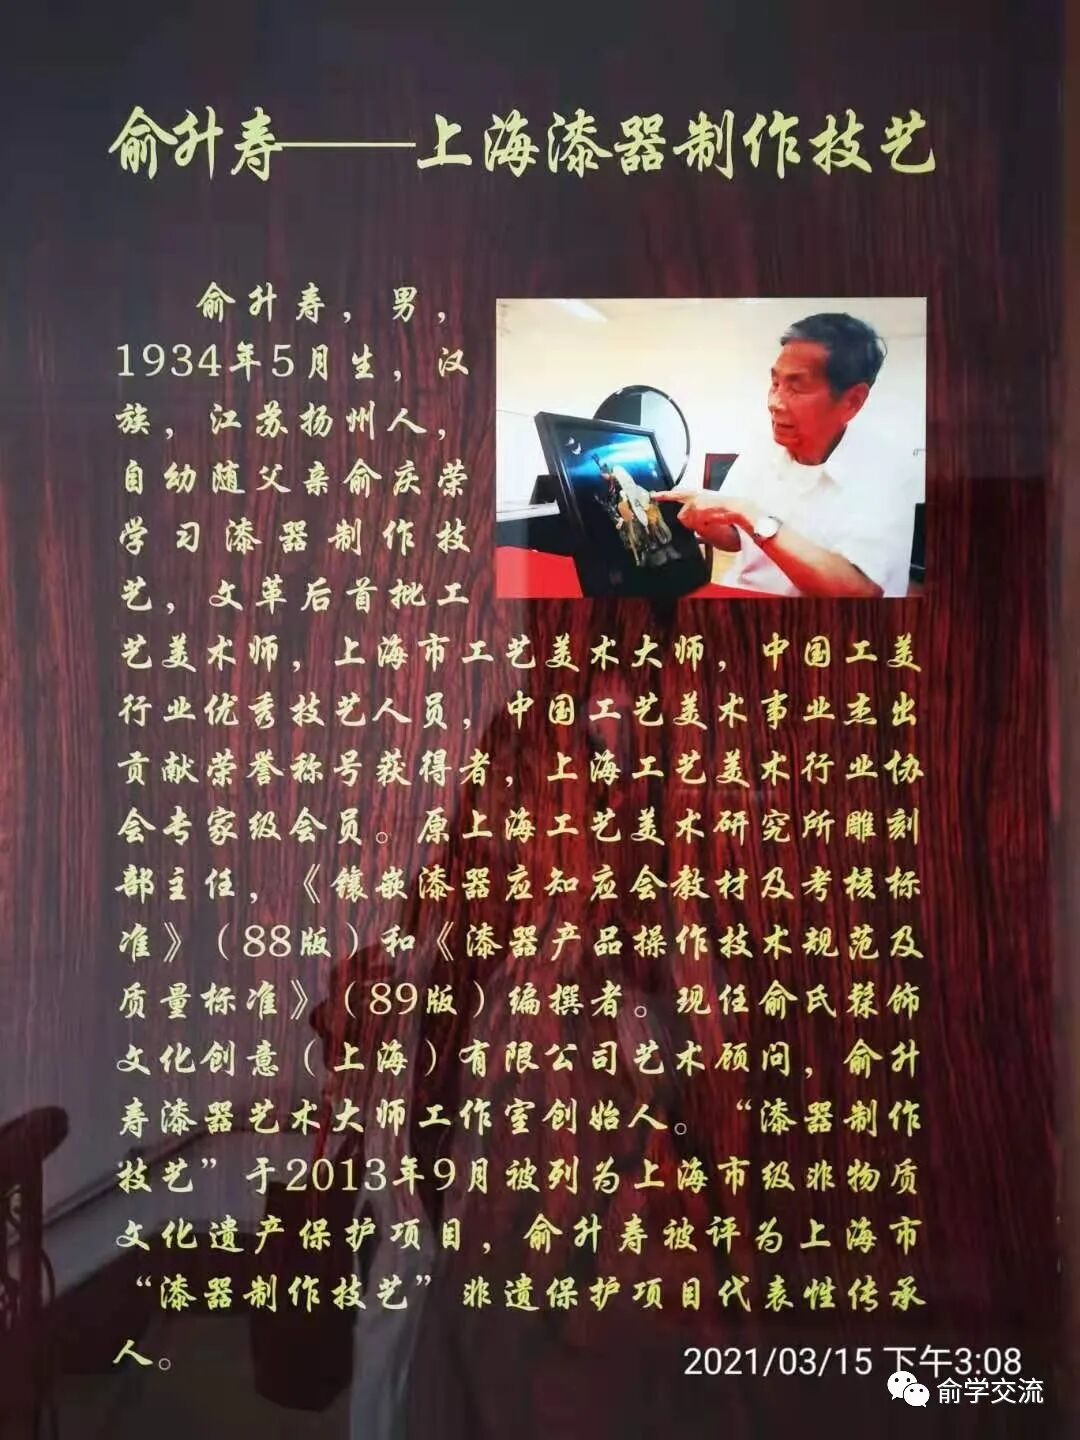 俞升寿——上海漆器制作技艺
俞升寿，男，
1934年5月生，汉
族，江苏扬州人，
自幼随父亲俞庆荣
学习漆器制作技
艺，文革后首批工
艺美术师，上海市工艺美术大师，中国工美
行业优秀技艺人员，中国工艺美术事业杰出
贡献荣誉称号获得者，上海工艺美术行业协
会专家级会员。原上海工艺美术研究所雕刻
部主任，《镶嵌漆器应知应会教材及考核标
准》（88版）和《漆器产品操作技术规范及
质量标准》（89版）编撰者。现任俞氏髹饰
文化创意（上海）有限公司艺术顾问，俞升
寿漆器艺术大师工作室创始人。“漆器制作
技艺”于2013年9月被列为上海市级非物质
文化遗产保护项目，俞升寿被评为上海市
“漆器制作技艺”非遗保护项目代表性传承
人。
2021/03/15 下午3:08
俞学交流